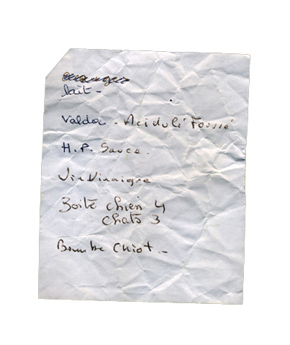 lait -
Valda - Acidulé
H.P. Sauce -
Vinaigre
Boite chien 4
Chats 3
Bombe Chiot -